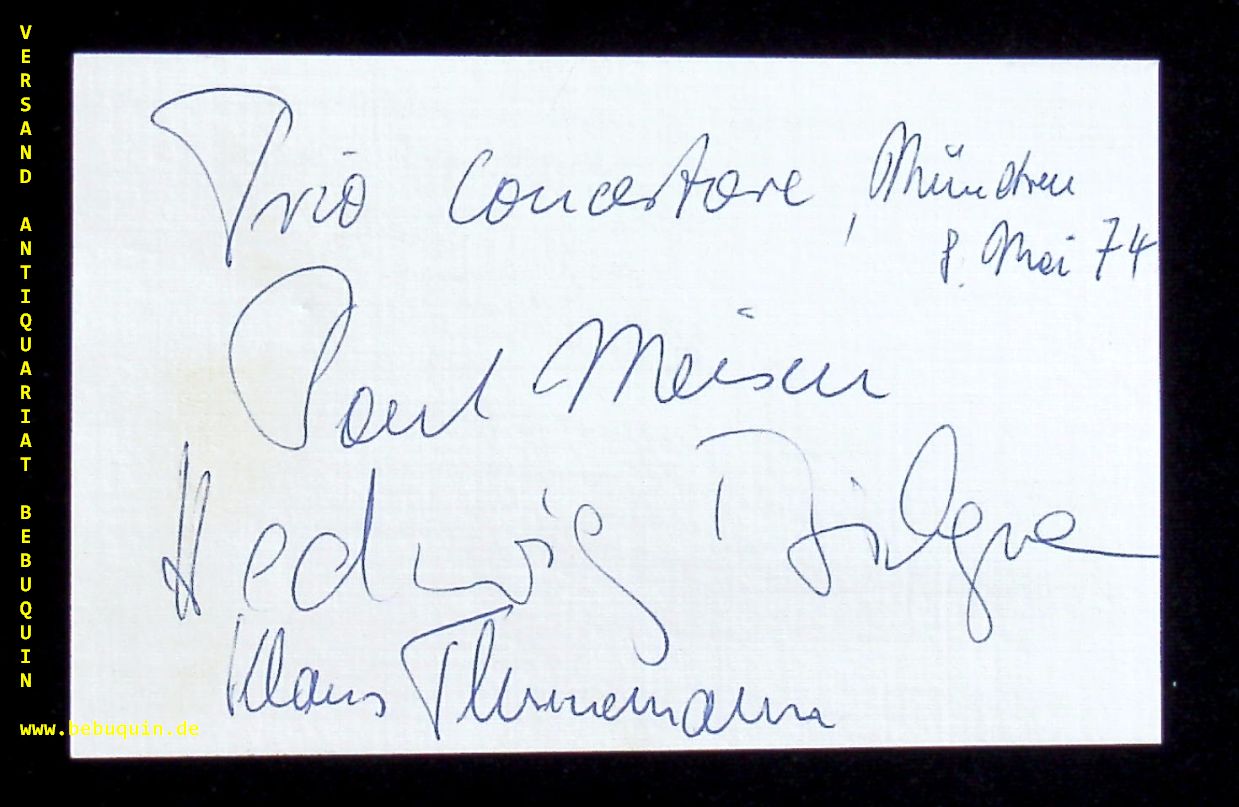 VERSAND ANTIQUARIAT BEBUQUIN
www.bebuquin.de
Trio Concertare, München
8. Mai 74
Paul Meisen
Hedwig Bilgram
Klaus Thunemann